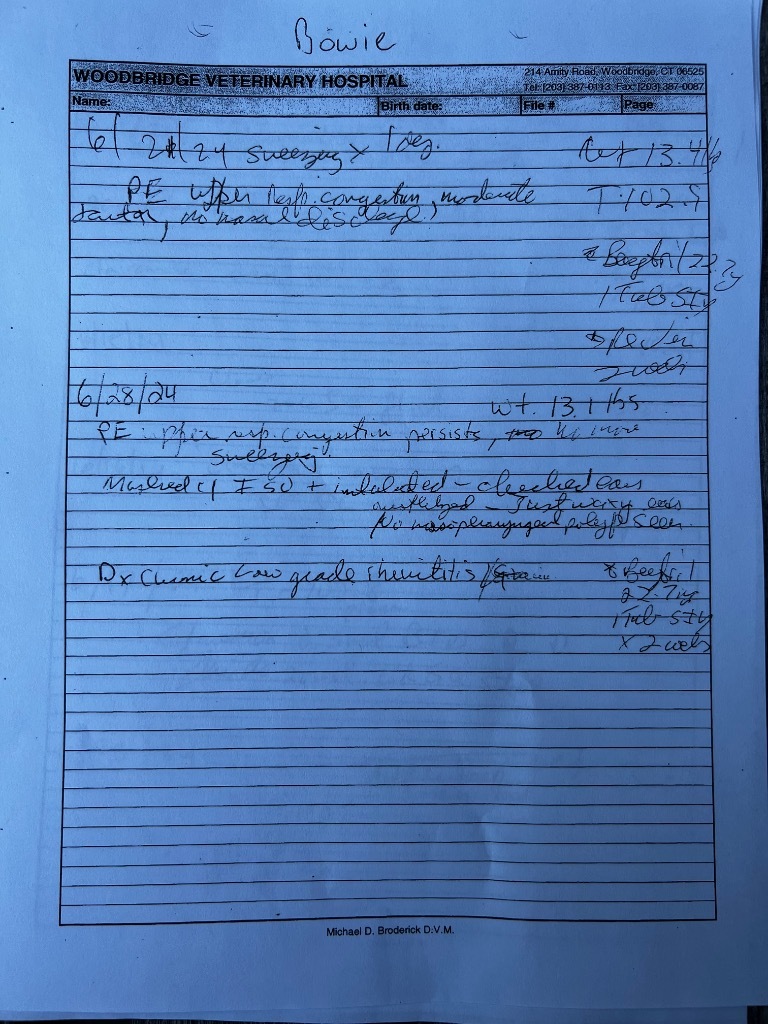 Bowie
WOODBRIDGE VETERINARY HOSPITAL
214 Amity Road, Woodbridge, CT 06525
Tel: (203) 387-0113 Fax: (203) 387-0087
Name: Birth date: File # Page
6/ 21/24 sneezing x 1 day. Wt 13.4 lb
PE upper resp. congestion, moderate T: 102.9
tartar, no nasal discharge
* Baytril 22.7
1 Tab SID
2 weeks
6/28/24 wt. 13.1 lbs
PE upper resp. congestion persists, no more
sneezing.
Masked c ISO + intubated - checked ears
- Just waxy ears
No nasopharyngeal polyp seen.
Dx Chronic Low grade rhinitis * Baytril
22.7mg
1 Tab SID
x 2 weeks
Michael D. Broderick D.V.M.